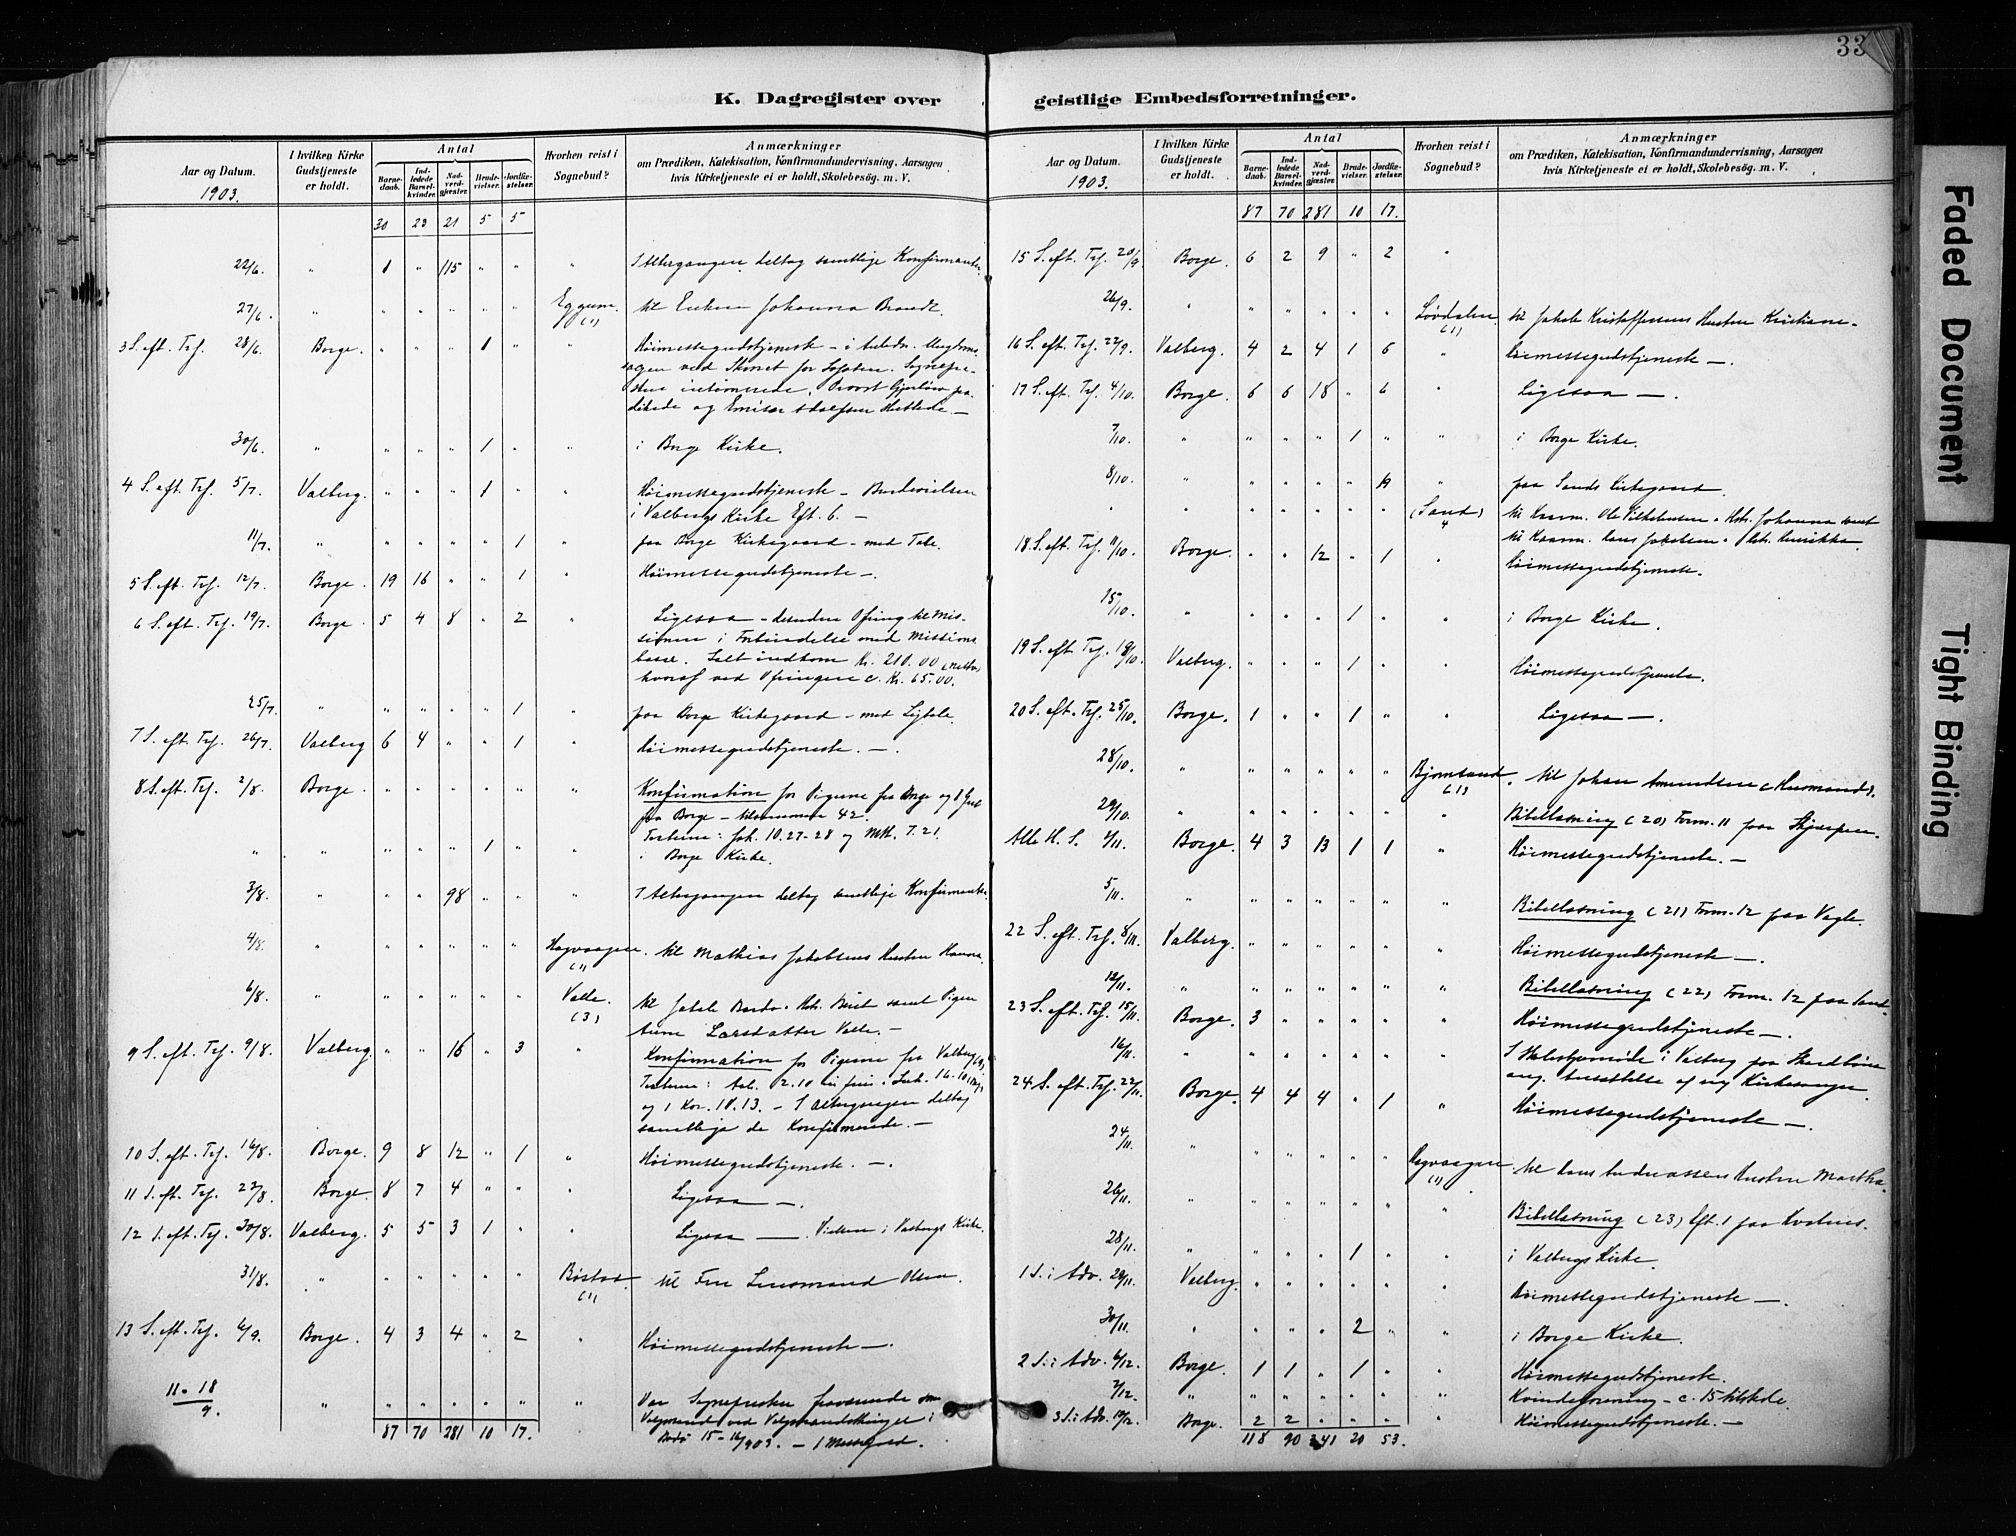 33
K. Dagregister over geistlige Embedsforretninger.
Aar og Datum. 1903.
I hvilken Kirke Gudstjeneste er holdt.
Antal
Barne-daab. Ind-ledede Barsel-kvinder. Nad-verd-gjæster. Brude-vielser. Jordfæ-stelser.
Hvorhen reist i Sognebud?
Anmærkninger
om Prædiken, Katekisation, Konfirmandundervisning, Aarsagen
hvis Kirketjeneste ei er holdt, Skolebesøg. m. V.
30 23 21 5 5
22/6. " 1 " 115 " " " I Altergangen deltog samtlige Konfirmanter
27/6. " " " " " " Eggum (1) til Enken Johanna Brandt.
3 S. eft. Trf. 28/6. Borge. " " " 1 " " Høimessegudstjeneste - i
30/6. " " " " 1 " " i Borge Kirke.
4 S. eft. Trf. 5/7. Valberg. " " " 1 " " Høimessegudstjeneste - Brudevielsen
i Valbergs Kirke Eft. 6. -
11/7. " " " " " 1 " paa Borge Kirkegaard - med Tale.
5 S. eft. Trf. 12/7. Borge. 19 16 " " 1 " Høimessegudstjeneste -.
6 S. eft. Trf. 19/7. Borge 5 4 8 " 2 " Ligesaa - desuden Ofring til Mis-
sionen i Forbindelse med Missions
basar. Salt indkom Kr. 210.00
hvoraf ved Ofringen c. Kr. 65.00.
25/7. " " " " " 1 " paa Borge Kirkegaard - med Ligtale.
7 S. eft. Trf. 26/7. Valberg 6 4 " " 1 " Høimessegudstjeneste. -.
8 S. eft. Trf. 2/8. Borge. " " " " " " Konfirmation for Pigerne fra Borge og 1 Gut
fra Borge - tilsammen 42.
Texterne: Joh. 10.27-28 og Mtt. 7.21.
" " " " " 1 " " i Borge Kirke.
3/8. " " " 98 " " " I Altergangen deltog samtlige Konfirmanter
4/8. " " " " " " Hagvaagen (1) til Mathias Jakobsens Hustru Hanna
6/8. " " " " " " Valle. (3) til Jakob
Larsdatter Valle. -
9 S. eft. Trf. 9/8. Valberg. " " 16 " 3 " Konfirmation for Pigerne fra Valberg
og 1 Kor. 10.13. - I Altergangen deltog
samtlige de Konfirmerede. -
10 S. eft. Trf. 16/8. Borge. 9 8 12 " 1 " Høimessegudstjeneste. -.
11 S. eft. Trf. 23/8. Borge. 8 7 4 " " " Ligesaa -.
12 S. eft. Trf. 30/8. Valberg. 5 5 3 1 " " Ligesaa -. Vielsen i Valbergs Kirke.
31/8. " " " " " " Bøstad (1) til Fru Lensmand Olsen.
13 S. eft. Trf. 6/9. Borge. 4 3 4 " 2 " Høimessegudstjeneste -.
11-18/9. " " " " " " " Var Sognepresten fraværende som
Valgmand ved Valgmandsthinget i
Bodø 15-16/903. -
87 70 281 10 17.
Aar og Datum. 1903.
I hvilken Kirke Gudstjeneste er holdt.
Antal
Barne-daab. Ind-ledede Barsel-kvinder. Nad-verd-gjæster. Brude-vielser. Jordfæ-stelser.
Hvorhen reist i Sognebud?
Anmærkninger
om Prædiken, Katekisation, Konfirmandundervisning, Aarsagen
hvis Kirketjeneste ei er holdt, Skolebesøg. m. V.
87 70 281 10 17.
15 S. eft. Trf. 20/9. Borge. 6 2 9 " 2 "
26/9. " " " " " " Løvdalen (1) til Jakob Kristoffersens Hustru Kristiane.
16 S. eft. Trf. 27/9. Valberg. 4 2 4 1 6 " Høimessegudstjeneste -.
17 S. eft. Trf. 4/10. Borge. 6 6 18 " 6 " Ligesaa -.
7/10. " " " " 1 " " i Borge Kirke.
8/10. " " " " " " paa Sands Kirkegaard.
" " " " " " (Sand) 4
18 S. eft. Trf. 11/10. Borge. " " 12 " 1 " Høimessegudstjeneste.
15/10. " " " " 1 " " i Borge Kirke.
19 S. eft. Trf. 18/10. Valberg. " " " 1 " " Høimessegudstjeneste.
20 S. eft. Trf. 25/10. Borge. 1 " " 1 " " Ligesaa -.
28/10. " " " " " " Bjørnsand (1). til Johan Amundsen
29/10. " " " " " " " Bibellæsning (20) Form. 11 paa Skjerpen.
Alle H. S. 1/11. Borge. 4 3 13 1 1 " Høimessegudstjeneste. -
5/11. " " " " " " " Bibellæsning (21) Form. 12 paa Vagle.
22 S. eft. Trf. 8/11. Valberg. " " " " " " Høimessegudstjeneste -.
12/11. " " " " " " " Bibellæsning (22) Form. 12 paa Sand.
23 S. eft. Trf. 15/11. Borge. 3 " " " " " Høimessegudstjeneste -.
16/11. " " " " " " " I Skolestyremøde i Valberg paa
ang. Ansættelse af ny Kirkesanger.
24 S. eft. Trf. 22/11. Borge. 4 4 4 " 1 " Høimessegudstjeneste -.
24/11. " " " " " " Hagvaagen (1) til Hans Andreassens Hustru Martha.
26/11. " " " " " " " Bibellæsning (23) Eft. 1 paa
28/11. " " " " 1 " " i Valbergs Kirke.
1 S. i Adv. 29/11. Valberg. " " " " " " Høimessegudstjeneste -.
30/11. " " " " 2 " " i Borge Kirke.
2 S. i Adv. 6/12. Borge. 1 1 " 1 " " Høimessegudstjeneste.
7/12. " " " " " " " Kvindeforening - c. 15 tilstede.
3 S. i Adv. 13/12. Borge. 2 2 " " " " Høimessegudstjeneste. -
118 90 341 20 53.
Faded Document
Tight Binding